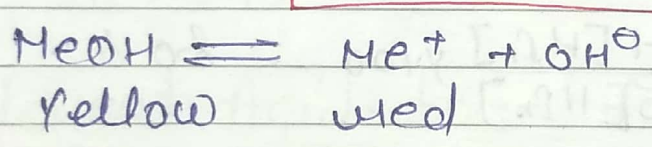 MeOH ⇌ Me⁺ + OH⊖
Yellow Red